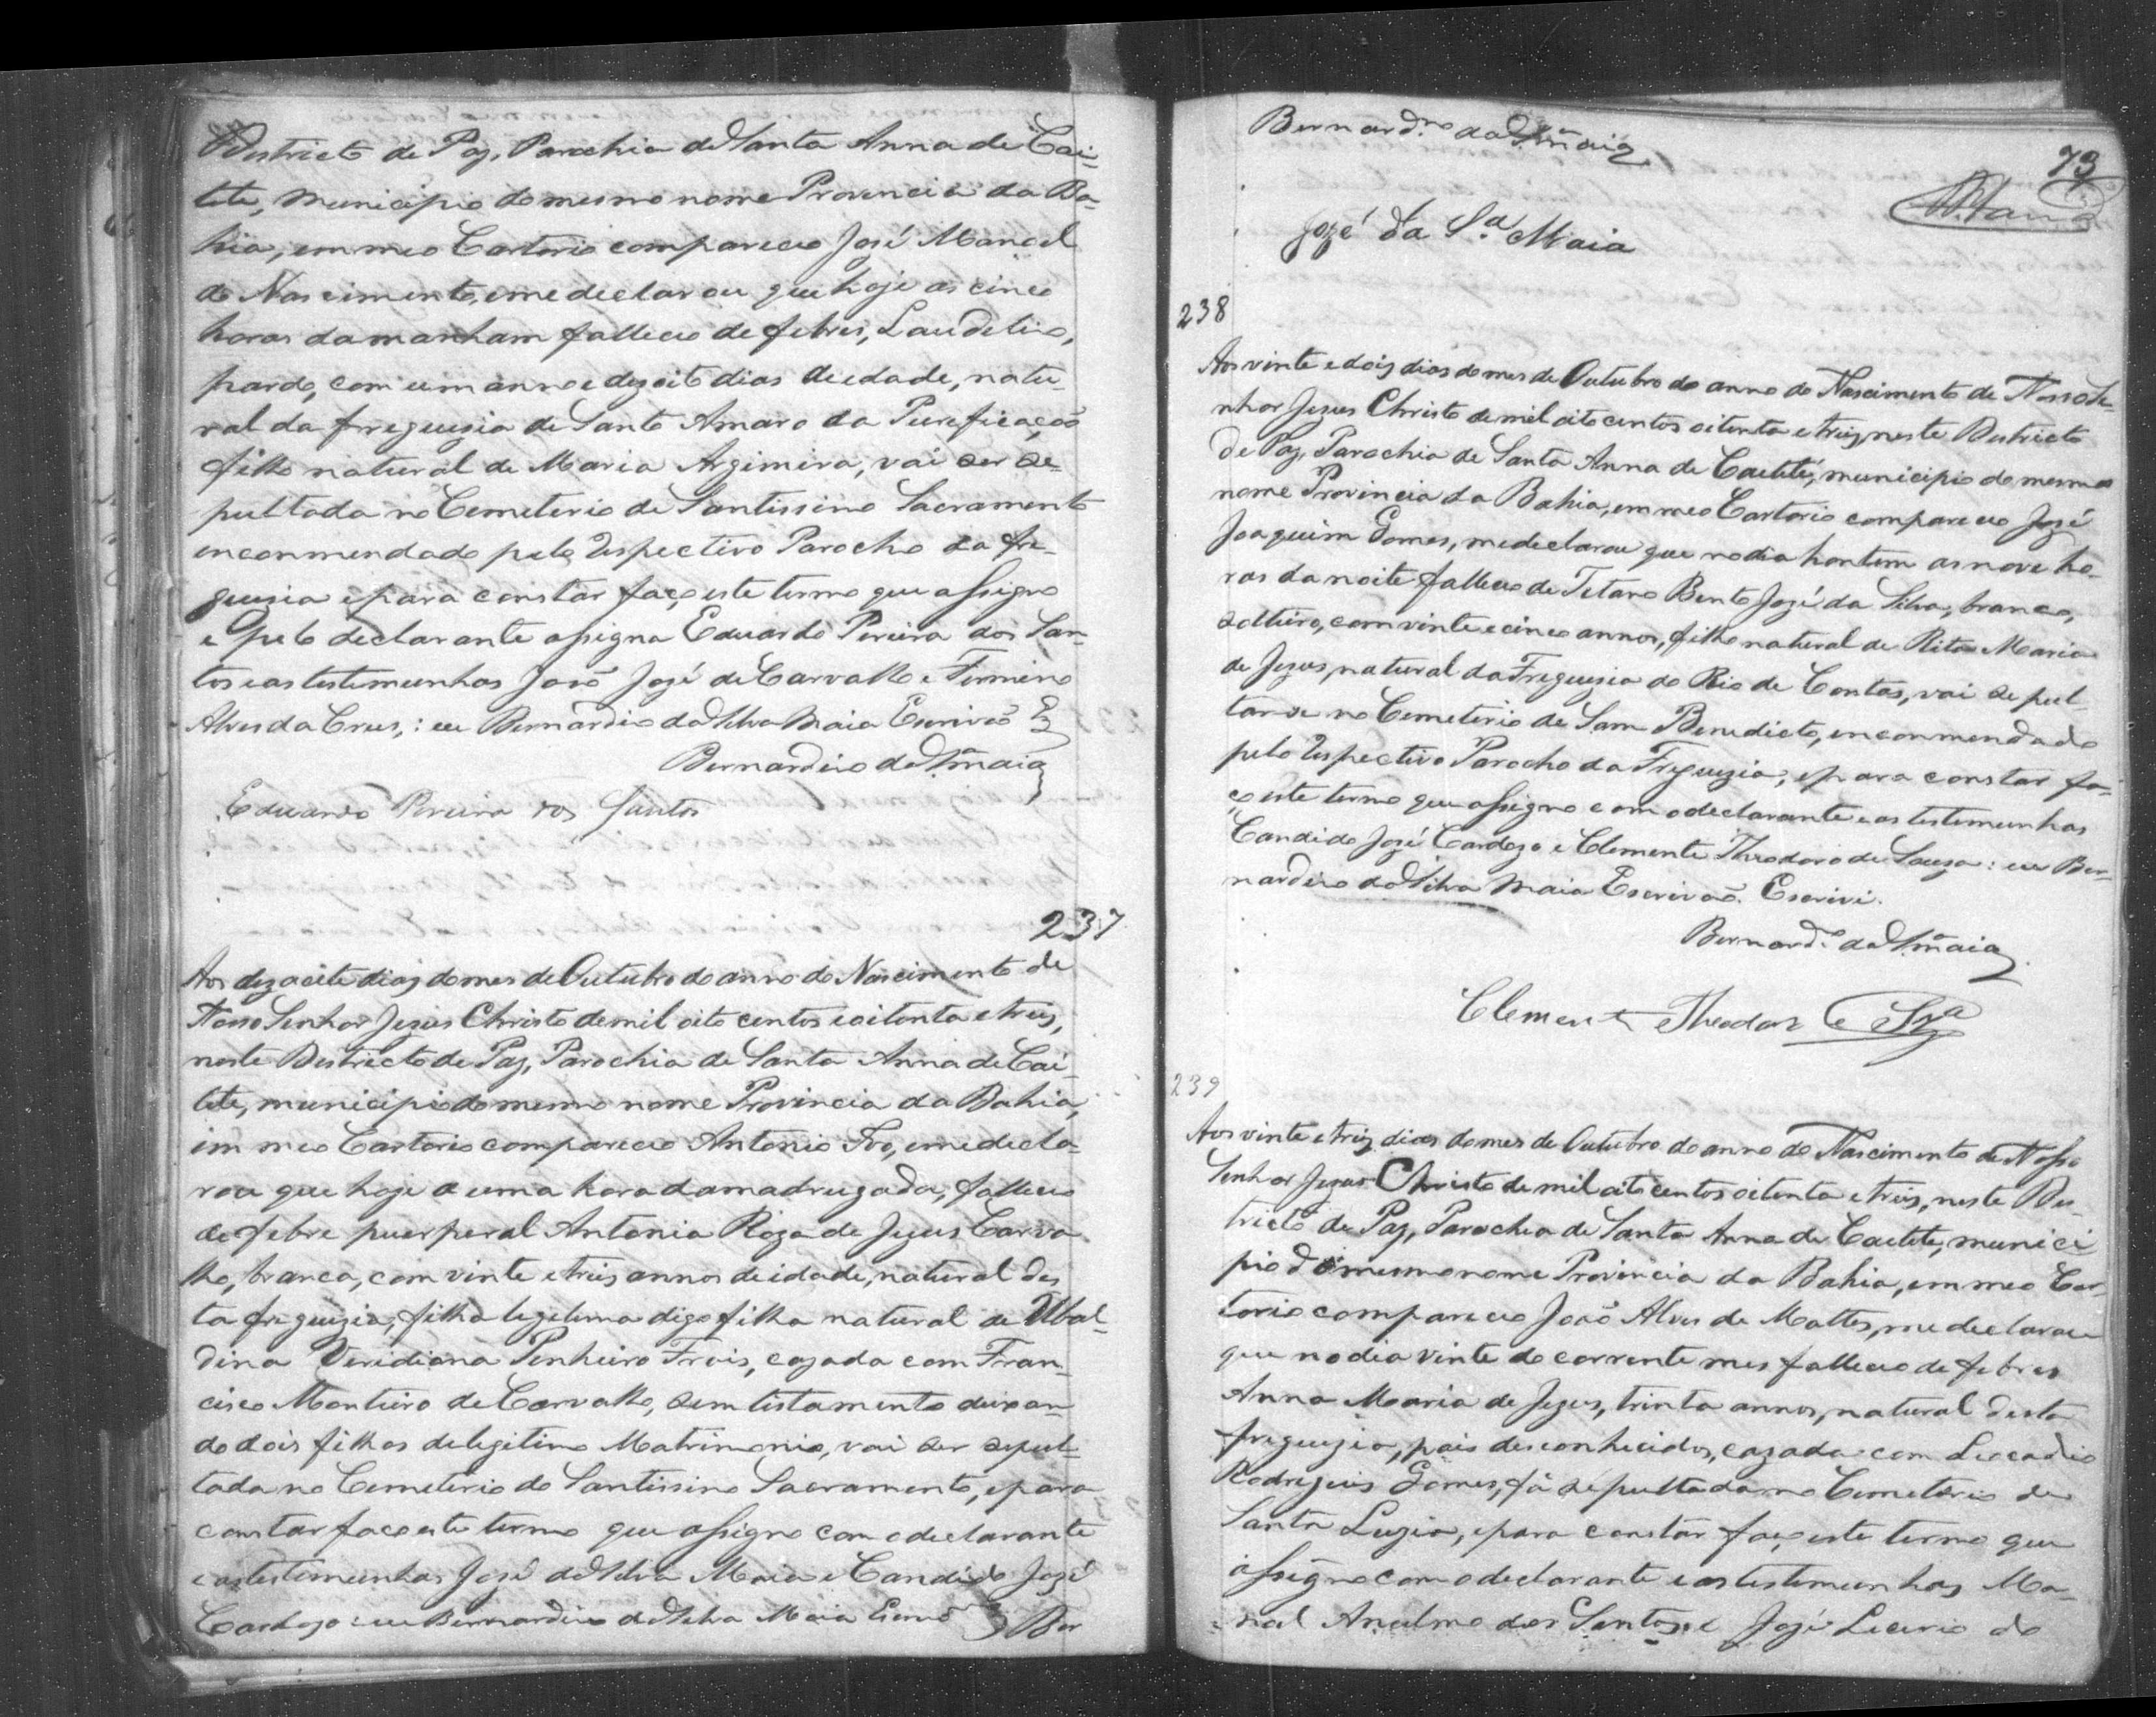 Districto de Paz, Parochia de Santa Anna de Cai-
tete, municipio do mesmo nome Provencia da Ba-
hia, em meo Cartorio compareceo José Manoel
do Nascimento, e me declarou que hoje as cinco
horas da manham falleceo de febres, Laudelino,
pardo, com um anno e dezoito dias de edade, natu-
ral da freguesia de Santo Amaro da Purificação
filho natural de Maria Argimira, vai ser se-
pultada no Cemeterio de Santissimo Sacramento
enconmendado pelo respectivo Parocho da fre-
guesia e para constar faço este termo que assigno
e pelo declarante assigna Eduardo Pereira dos San-
tos e as testemunhas João José de Carvalho e Firmino
Alves da Crus,: eu Bernardino da Silva Maia Escrivão
Bernardino da S.ª Maia
Eduardo Pereira dos Santos
237
Aos dezaceite dias do mes de Outubro do anno do Nascimento de
Nosso Senhor Jezus Christo de mil oito centos e oitenta e tres,
neste Districto de Paz, Parochia de Santa Anna de Cai-
tete, municipio do mesmo nome Provincia da Bahia,
im meo Cartorio compareceo Antonio Ivo, e me decla-
rou que hoje a uma hora da madrugada, falleceo
de febre puerperal Antonia Roza de Jezus Carva-
lho, branca, com vinte e tres annos de idade, natural des
ta freguizia, filha legitima digo filha natural de Ubal-
dina Veridiana Pinheiro Frois, cazada com Fran-
cisco Monteiro de Carvalho, sem testamento deixan-
do dois filhos de legitimo Matrimonio, vai ser sepul-
tada no Cemeterio do Santissimo Sacramento, e para
constar faco este termo que assigno com o declarante
e as testemunhas José da Silva Maia e Candido José
Cardozo: eu Bernardino da Silva Maia Escrivão Ber
Bernard.no da S.ª Maia
73
Jozé da S.ª Maia
238
Aos vinte e dois dias do mes de Outubro do anno do Nascimento de Nosso Se-
nhor Jezus Christo de mil oito centos oitenta e tres, neste Districto
de Paz, Parochia de Santa Anna de Caetité, municipio do mesmo
nome Provincia da Bahia, em meo Cartorio compareceo José
Joaquim Gomes, me declarou que no dia hontem as nove ho-
ras da noite falleceo de Tetano Bento José da Silva, branco,
solteiro, com vinte e cinco annos, filho natural de Rita Maria
de Jezus, natural da Freguezia do Rio de Contas, vai sepul
tarse no Cemeterio de Sam Benedicto, enconmendado
pelo respectivo Parocho da Freguezia, e para constar fa-
ço este termo que assigno com o declarante e as testemunhas
Candido José Cardozo e Clemente Theodoro de Souza: eu Ber-
nardino da Silva Maia Escrivão. Escrivi.
Bernard.º da S.ª Maia
Clement Theodor e Sza
239
Aos vinte e tres dias do mes de Outubro do anno do Nascimento de Nosso
Senhor Jezus Christo de mil oito centos oitenta e tres, neste Dis-
tricto de Paz, Parochia de Santa Anna de Caetete, munici
pio do mesmo nome Provincia da Bahia, em meo Car-
torio compareceo João Alves de Mattos, me declarou
que no dia vinte do corrente mes falleceo de febres
Anna Maria de Jezus, trinta annos, natural desta
freguezia, pais desconhecidos, cazada com Leocadio
Rodrigues Gomes, fôi sepultada no Cemeterio de
Santa Luzia, e para constar faço este termo que
assigno com o declarante e as testemunhas Ma-
noel Anselmo dos Santos e José Licerio do